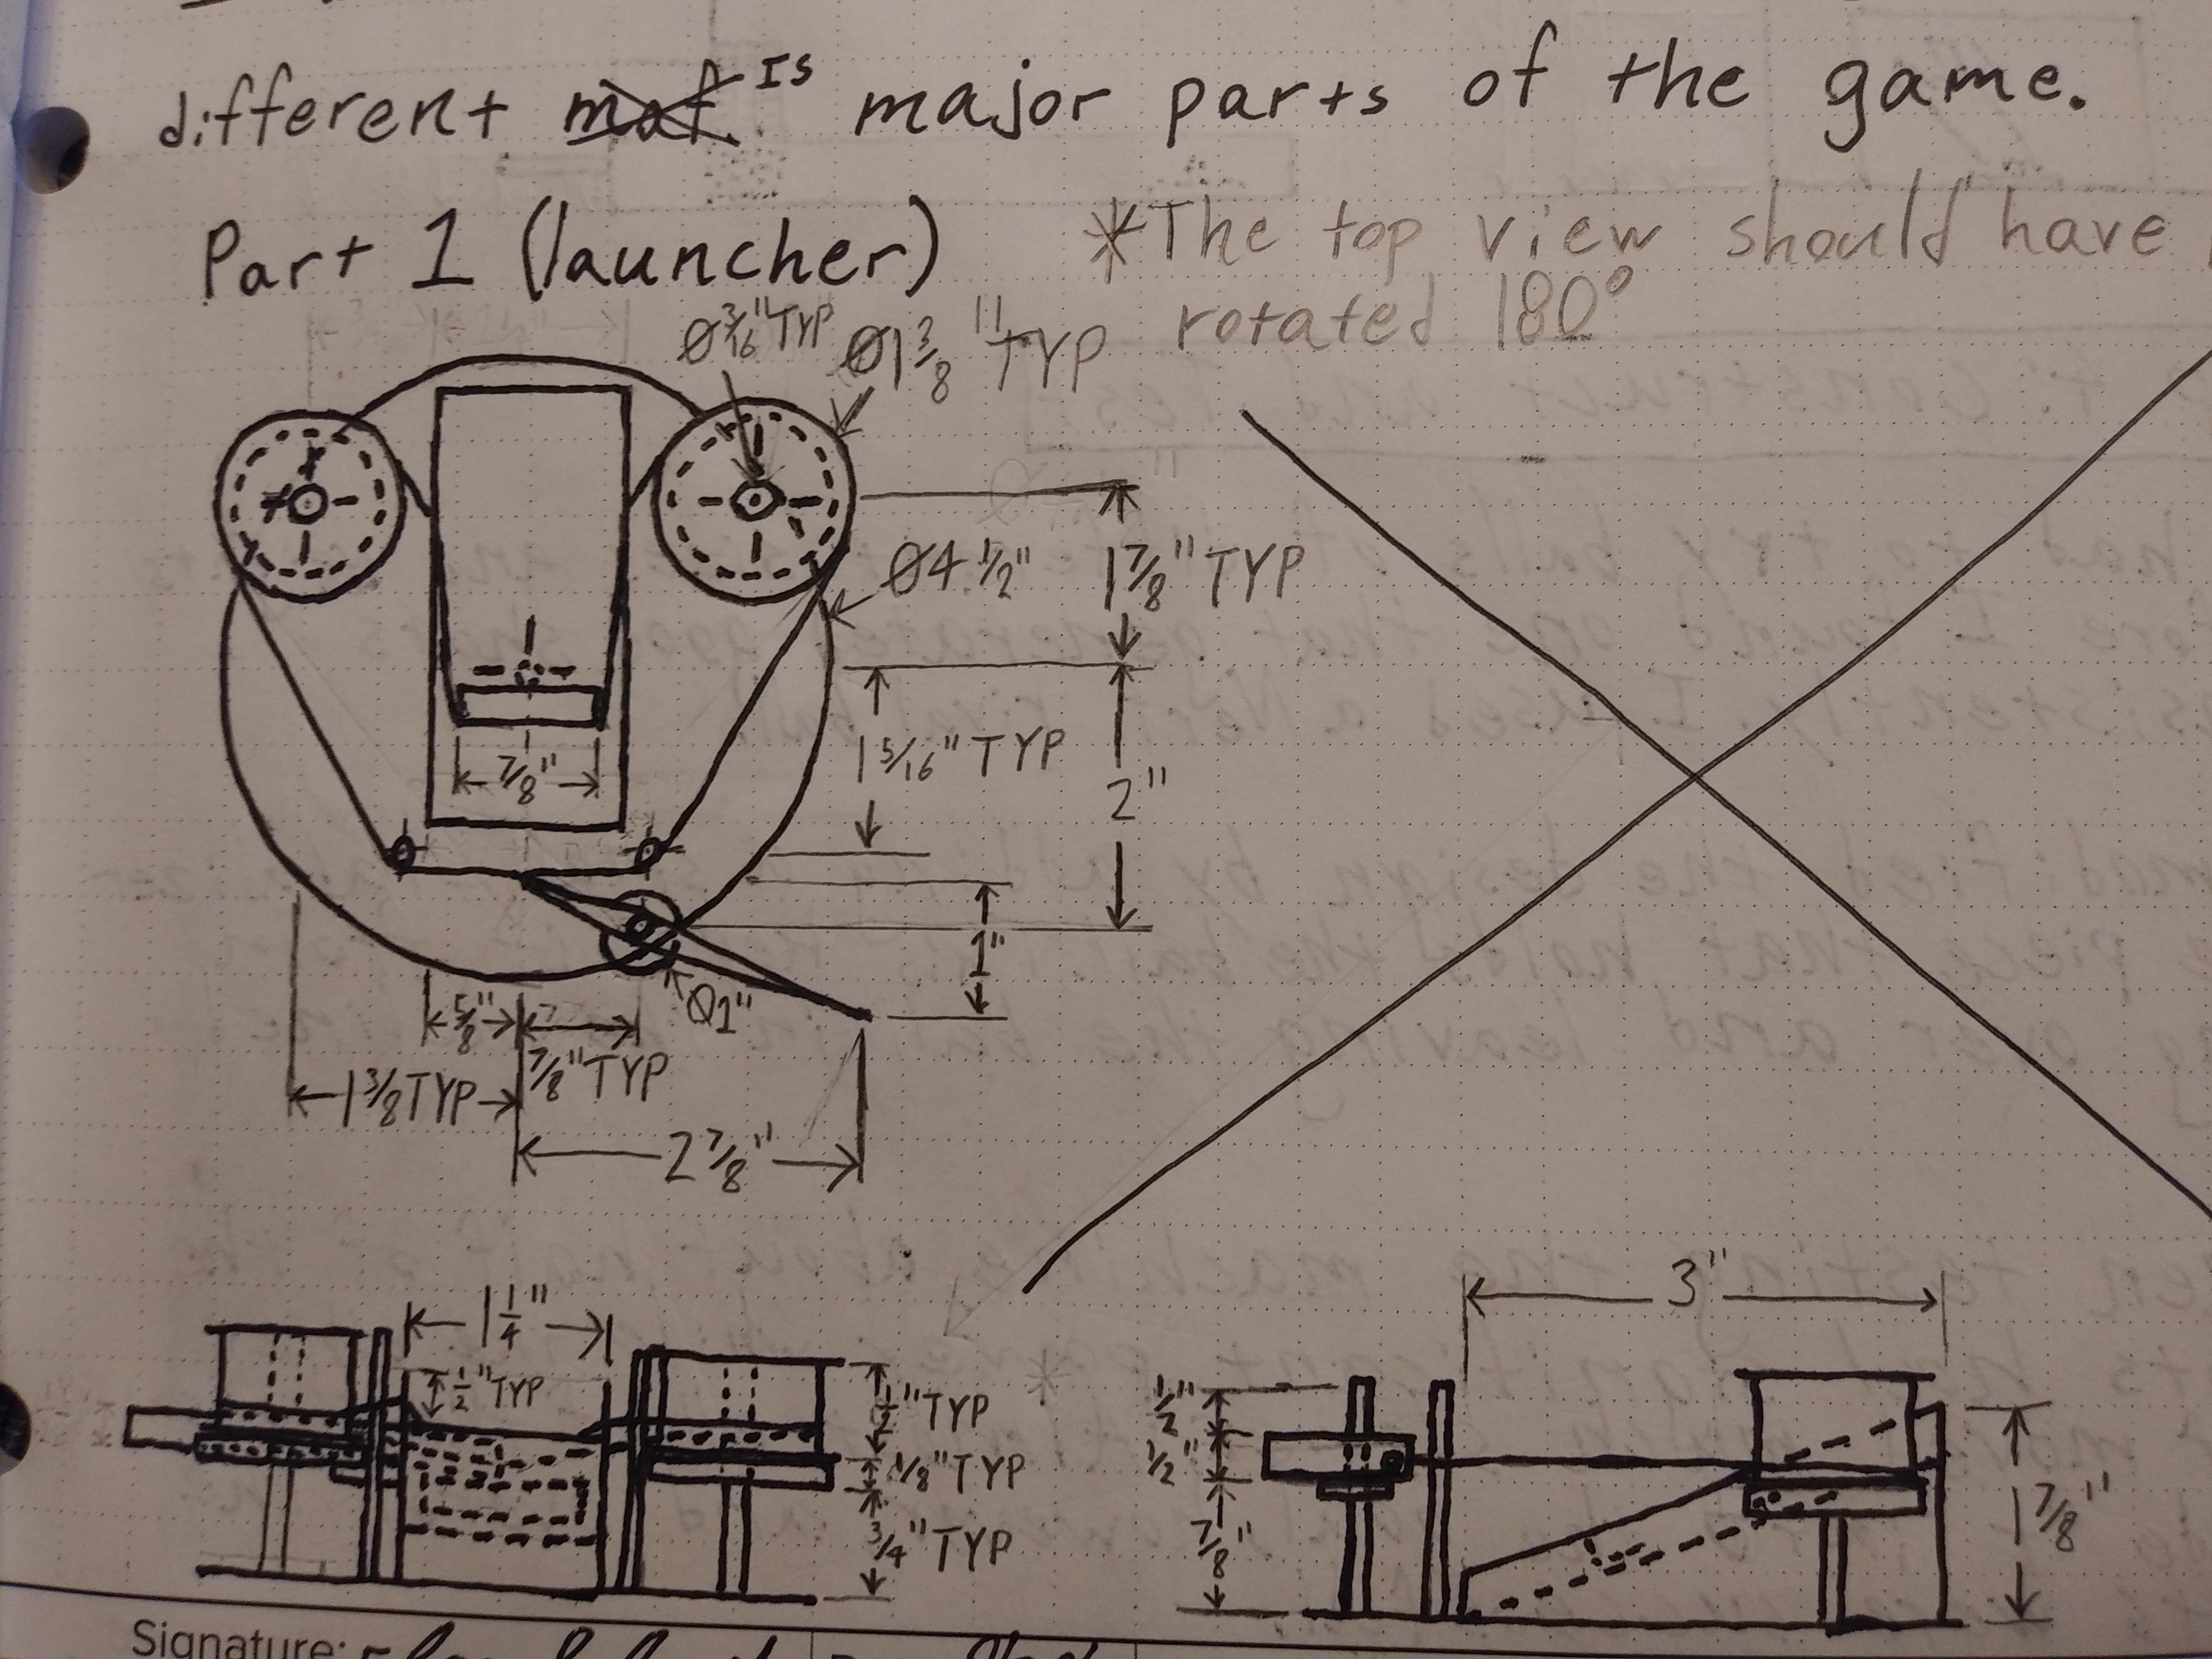 different Is major parts of the game.
Part 1 (launcher)
*The top view should have
rotated 180°
Ø3/16" TYP
Ø1 3/8" TYP
Ø4 1/2"
1 7/8" TYP
1 5/16" TYP
2"
7/8"
1"
Ø1"
5/8"
7/8" TYP
1 3/8 TYP
2 7/8"
1 1/4"
1/2" TYP
1/2" TYP
1/8" TYP
3/4" TYP
3"
1/2"
1/2"
7/8"
1 7/8"
Signature: